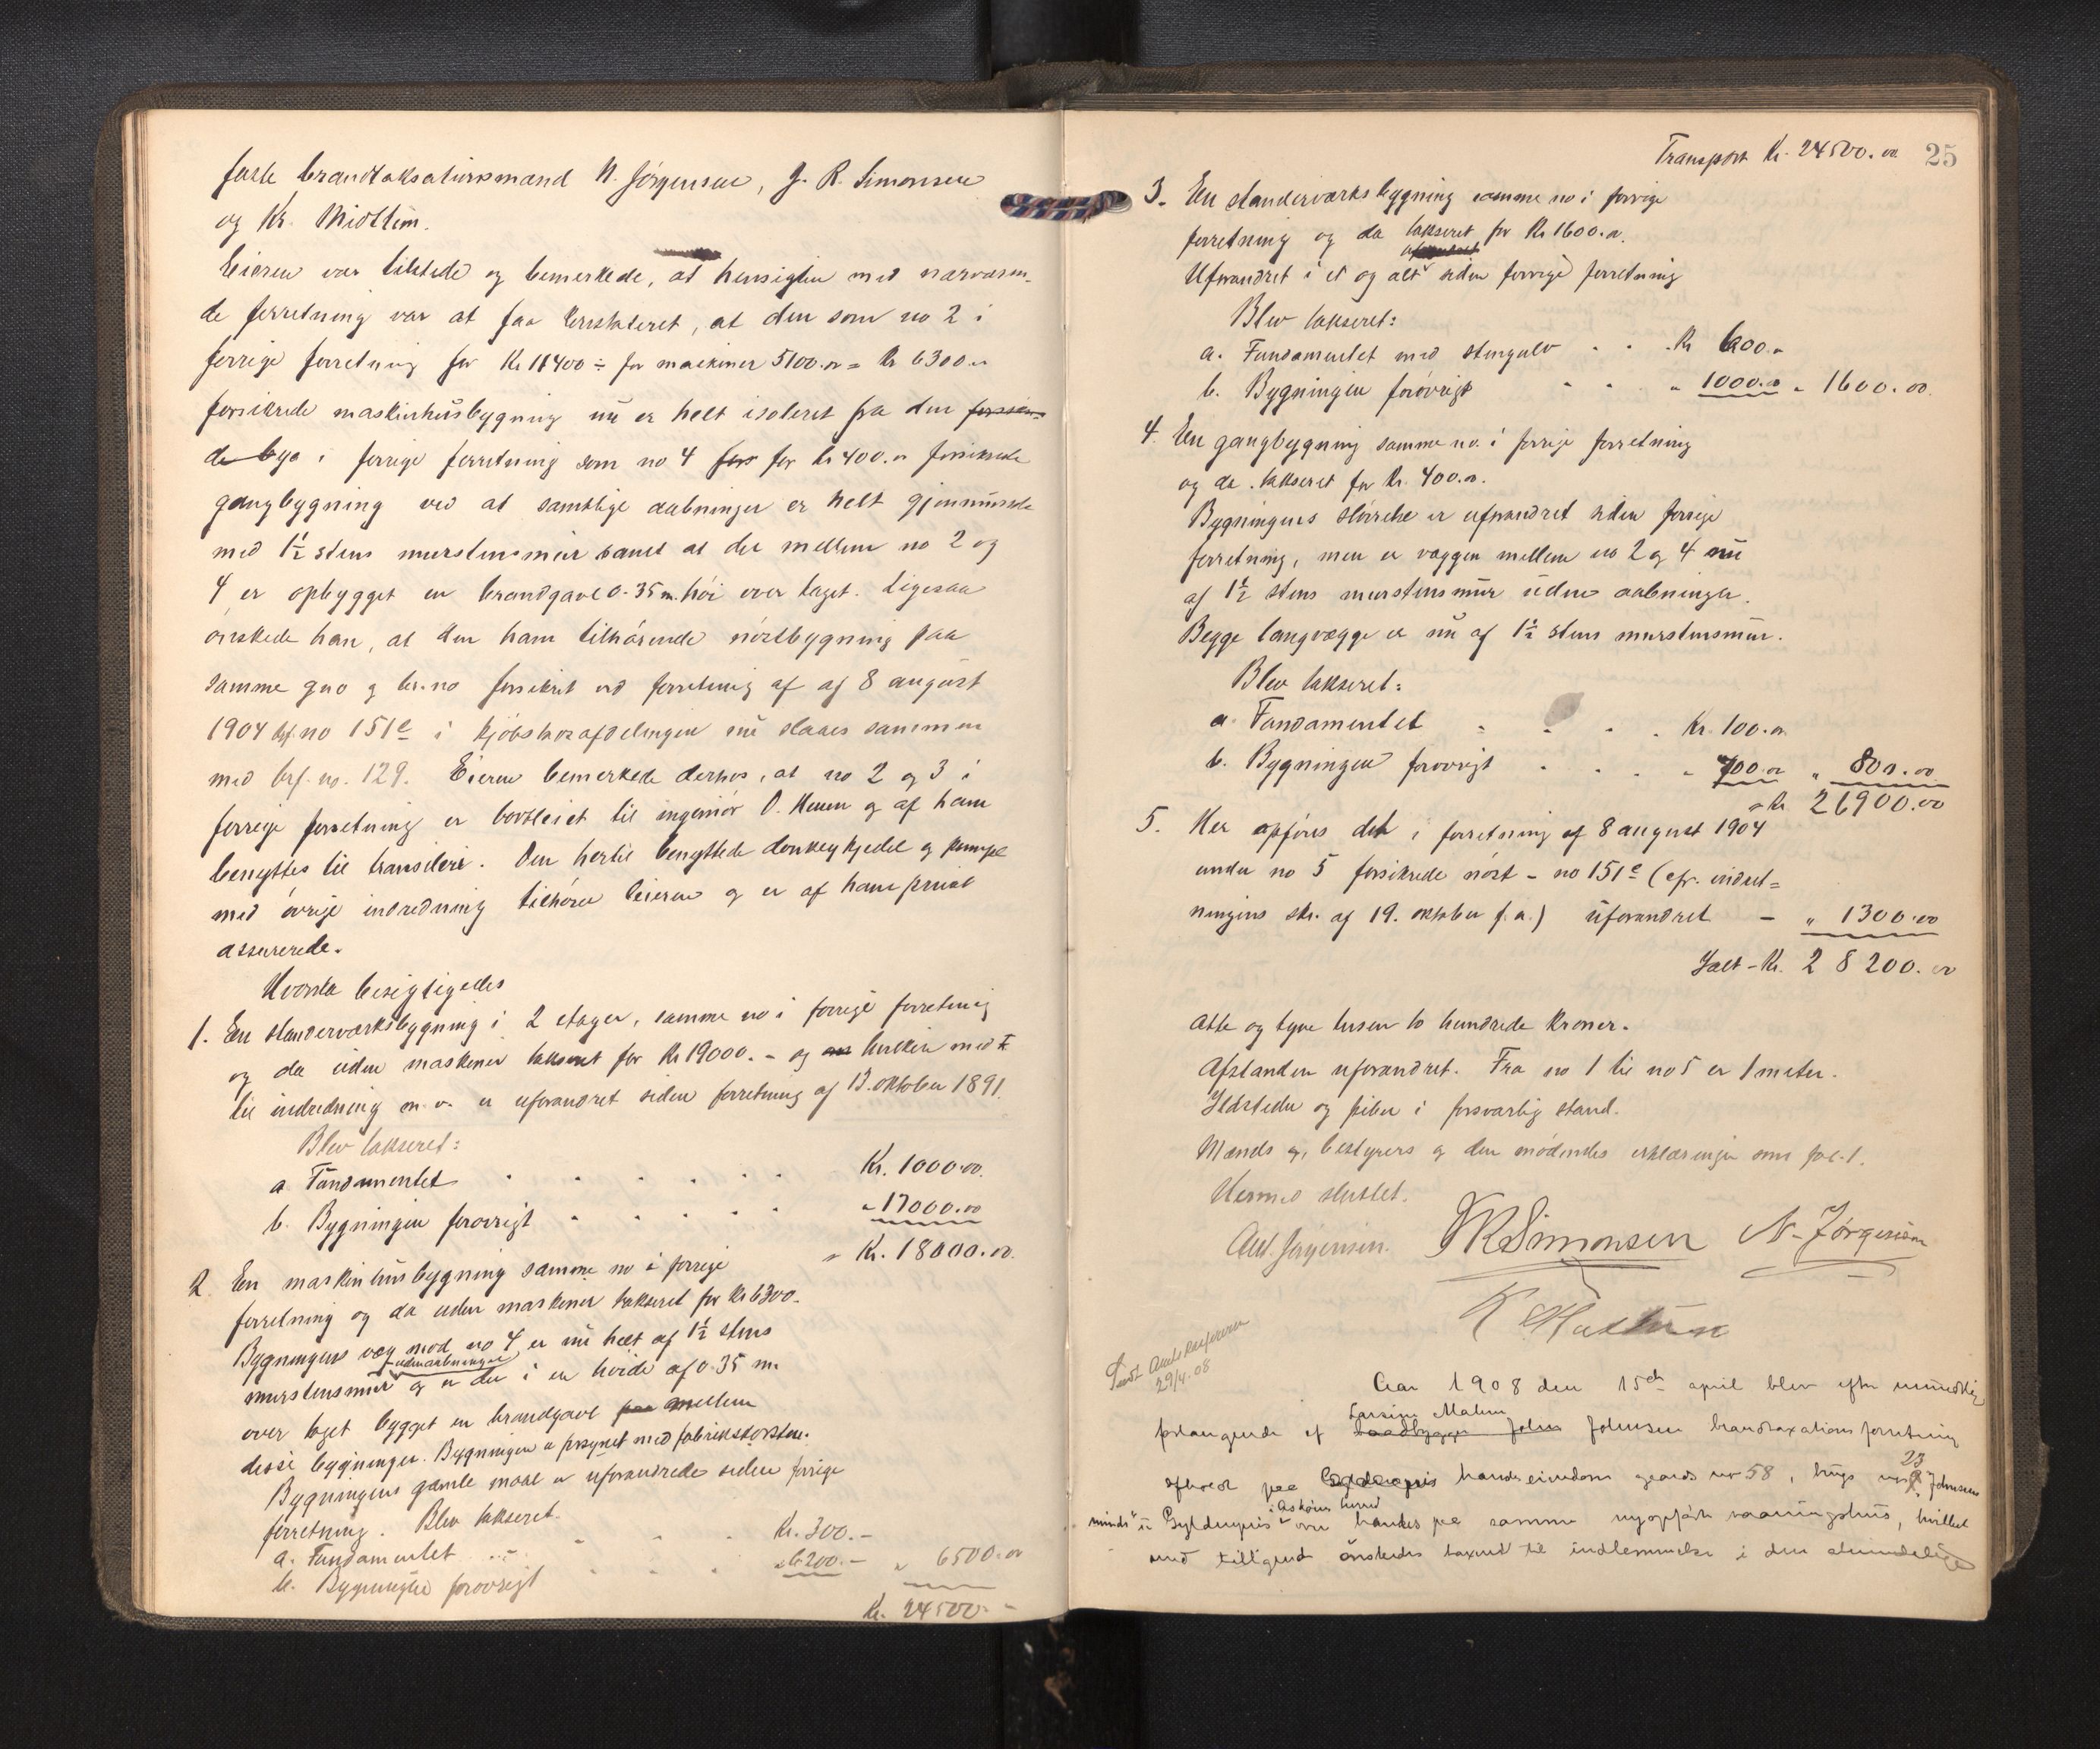 faste brandtaksationsmænd N. Jørgensen, J. R. Simonsen
og Kr. Midttun.
Eieren var tilstede og bemerkede, at hensigten med nærværen-
de forretning var at faa konstateret, at den som no 2 i
forrige forretning for Kr 11400 ÷ for maskiner 5100.00 = Kr 6300.00
forsikrede maskinhusbygning nu er helt isoleret fra den
i forrige forretning som no 4 for Kr 400.00 forsikrede
gangbygning ved at samtlige aabninger er helt gjenmurede
med 1½ stens murstensmur samt at der mellem no 2 og
4 er opbygget en brandgavl 0.35 m. høi over taget. Ligesaa
ønskede han, at den ham tilhørende nøstbygning paa
samme gno og br.no forsikret ved forretning af af 8 august
1904 brf. no 151e i kjøbstadafdelingen nu slaaes sammen
med brf. no. 129. Eieren bemerkede derhos, at no 2 og 3 i
forrige forretning er bortleiet til ingeniør O. og af ham
benyttes til trandamperi. Den hertil benyttede donkeykjedel og pumpe
med øvrige indredning tilhører leieren og er af ham privat
assurerede.
Hvorda besigtigedes
1. En standerværksbygning i 2 etager, samme no i forrige forretning
og da uden maskiner takseret for Kr 19000. - og hvilken med
til indredning m. v. er uforandret siden forretning af 13. oktober 1891.
Blev takseret:
a. Fundamentet . . . . . . Kr. 1000.00
b. Bygningen forøvrigt . . . . . " 17000.00
" Kr. 18000.00
2. En maskinhusbygning samme no i forrige
forretning og da uden maskiner takseret for Kr 6300.-
Bygningens væg mod no 4 er nu helt af 1½ stens
uden aabninger
murstensmur og er der i en høide af 0.35 m.
over taget bygget en brandgavl paa mellem
disse bygninger. Bygningen er forsynet med fabrikskorsten.
Bygningens gamle maal er uforandrede siden forrige
forretning. Blev takseret.
a. Fundamentet . . . . Kr. 300.-
b. Bygningen forøvrigt . . . " 6200.- " 6500.00
Kr. 24500.-
Transport Kr. 24500.00 25
3. En standerværksbygning samme no i forrige
forretning og da takseret for Kr 1600.00.
Uforandret i et og alt siden forrige forretning
Blev takseret:
a. Fundamentet med stengulv . . . Kr 600.00
b. Bygningen forøvrigt . . . " 1000.00 " 1600.00
4. En gangbygning samme no. i forrige forretning
og da takseret for Kr. 400.00.
Bygningens størrelse er uforandret siden forrige
forretning, men er væggen mellem no 2 og 4 nu
af 1½ stens murstensmur uden aabninger.
Begge langvægge er nu af 1½ stens murstensmur.
Blev takseret:
a. Fundamentet . . . . Kr. 100.00
b. Bygningen forøvrigt . . . . " 700.00 " 800.00
" Kr. 26900.00
5. Her opføres det i forretning af 8 august 1904
under no 5 forsikrede nøst - no 151e (cfr. indret-
ningens skr. af 19. oktober f. a.) uforandret - " 1300.00
Ialt - Kr. 28200.00
Otte og tyve tusen to hundrede kroner.
Afstanden uforandret. Fra no 1 til no 5 er 1 meter.
Ildsteder og piber i forsvarlig stand.
Mænds og bestyrers og den mødendes erklæringer som fol. 1.
Hermed sluttet.
Ant. Jørgensen. JRSimonsen N. Jørgensen
K Midttun
Sendt
29/4.08
Aar 1908 den 15de april blev efter mundtlig
Larsine Malene
forlangende af baadbygger John Johnsen brandtaxationsforretning
23
afholdt paa hendes eiendom gaards nr 58, brugs nr Johnsens
i Askøens herred
minde i Gyldenpris over hendes paa samme nyopførte vaaningshus, hvilket
med tilligend ønskedes taxeret til indlemmelse i den almindelige